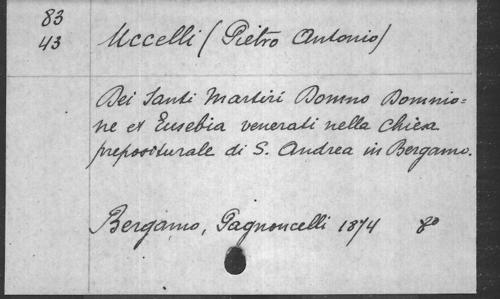 83
43
Uccelli (Pietro Antonio)
Dei Santi Martiri Domno Domnio=
ne et Eusebia venerati nella chiesa
prepositurale di S. Andrea in Bergamo.
Bergamo, Pagnoncelli 1874 8º